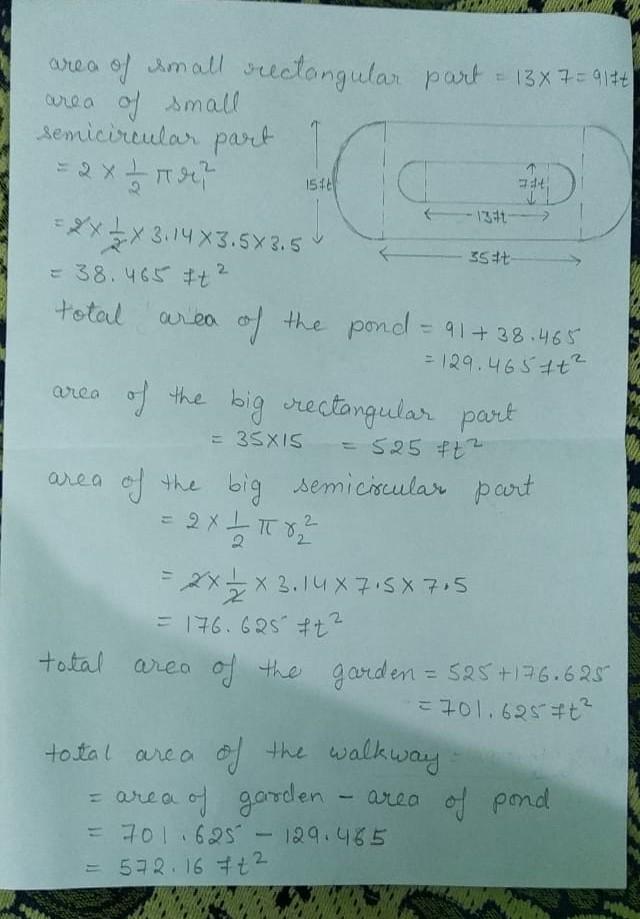 area of small rectangular part = 13 x 7 = 91ft
area of small
semicircular part
= 2 x 1/2 π r₁²
= 2 x 1/2 x 3.14 x 3.5 x 3.5
= 38.465 ft²
15ft
7ft
13ft
35ft
total area of the pond = 91 + 38.465
= 129.465 ft²
area of the big rectangular part
= 35x15 = 525 ft²
area of the big semicircular part
= 2 x 1/2 π r₂²
= 2 x 1/2 x 3.14 x 7.5 x 7.5
= 176.625 ft²
total area of the garden = 525 + 176.625
= 701.625 ft²
total area of the walkway
= area of garden - area of pond
= 701.625 - 129.465
= 572.16 ft²